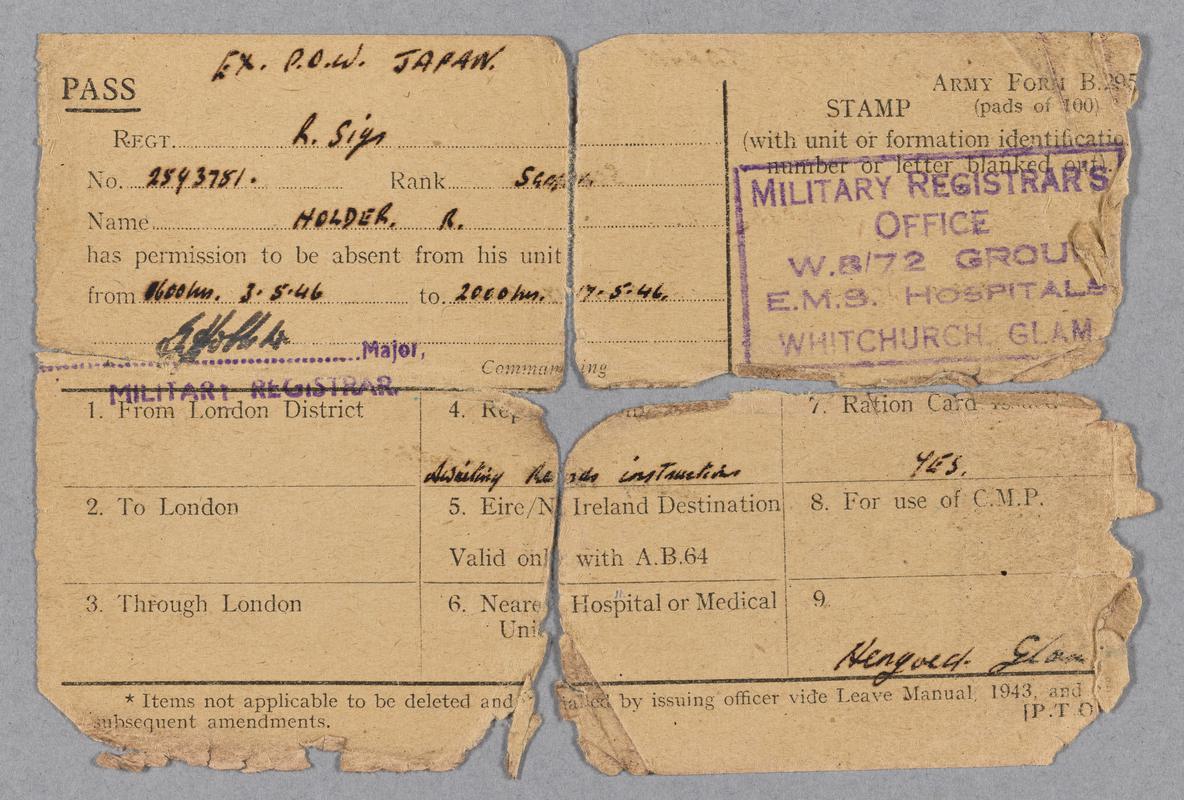 EX. P.O.W. JAPAN.
PASS
ARMY FORM B.295
(pads of 100)
STAMP
(with unit or formation identificatio
number or letter blanked out).
REGT. R. Sigs
No. 2593781. Rank
Name HOLDER. R.
has permission to be absent from his unit
from 0600hrs. 3.5.46 to. 2000hrs. 17.5.46.
Major,
Comman ing
MILITARY REGISTRAR.
MILITARY REGISTRAR'S
OFFICE
W.8/72 GROU
E.M.S. HOSPITALS
WHITCHURCH, GLAM
1. From London District
4. Rep
Awaiting Re rds instructions
7. Ration Card issued
YES.
2. To London
5. Eire/N Ireland Destination
Valid only with A.B.64
8. For use of C.M.P.
3. Through London
6. Neare Hospital or Medical
Uni
9.
Hengoed. Glam
* Items not applicable to be deleted and ialled by issuing officer vide Leave Manual, 1943, and
subsequent amendments.
[P.T.O